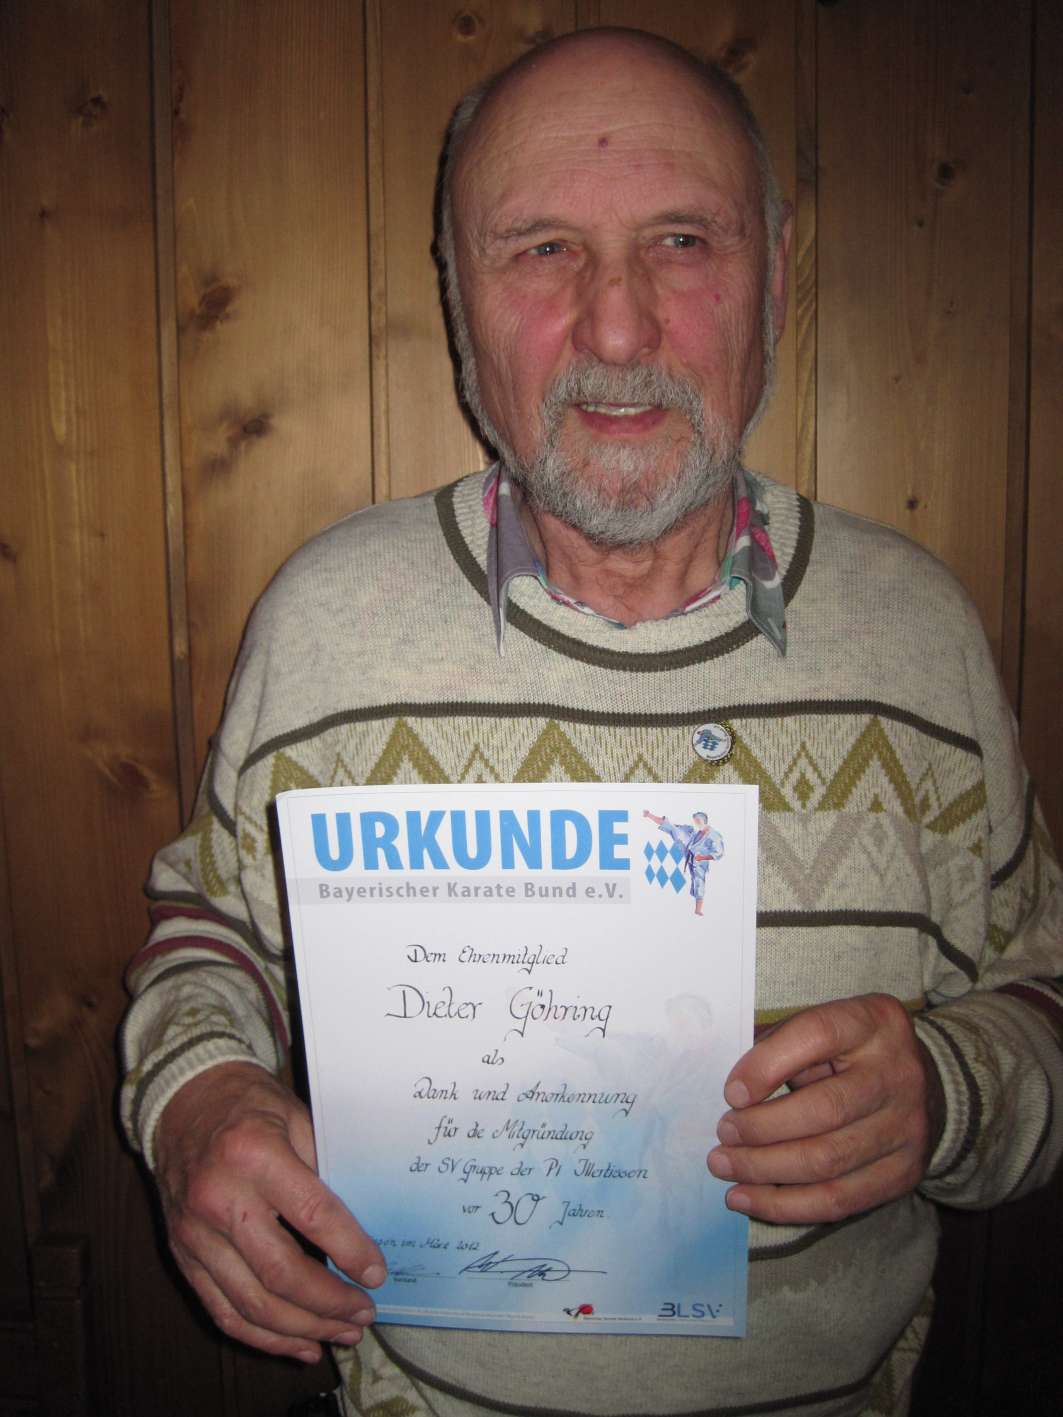 URKUNDE
Bayerischer Karate Bund e.V.
Dem Ehrenmitglied
Dieter Göhring
als
Dank und Anerkennung
für die Mitgründung
der SV Gruppe der PI Illertissen
vor 30 Jahren.
im März 2012
Präsident
BLSV